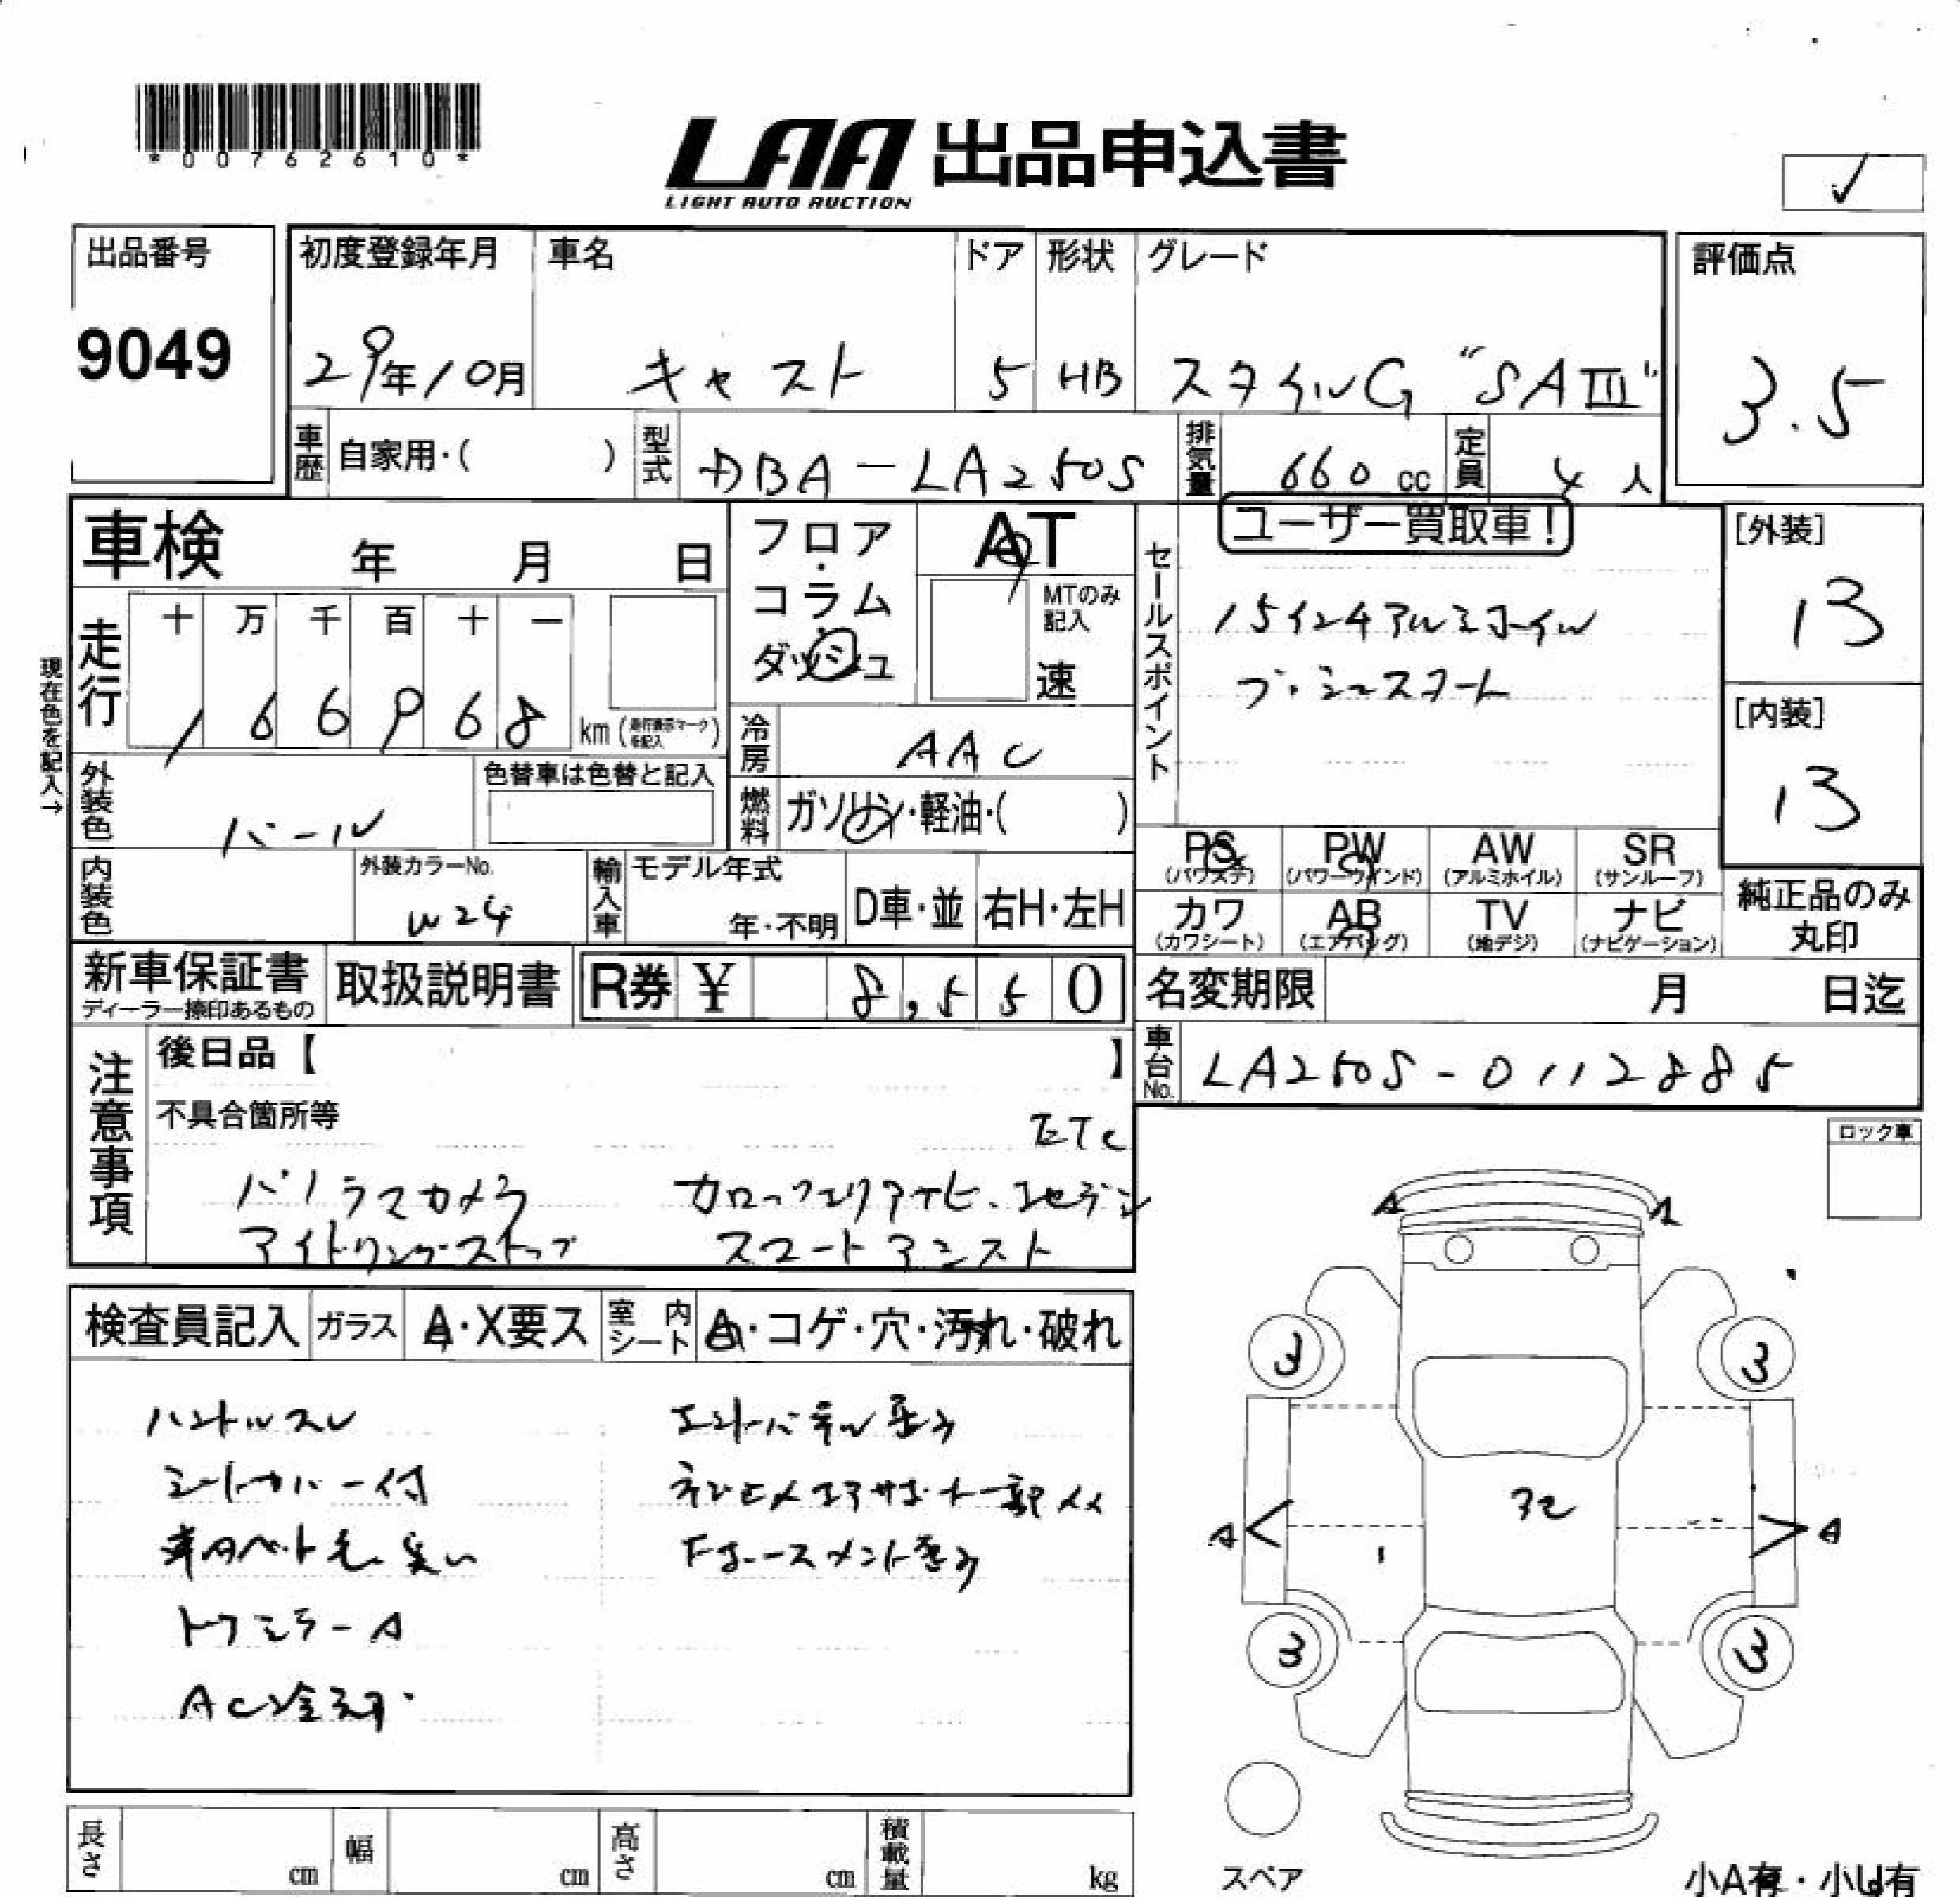 *00762610*
LAA 出品申込書
LIGHT AUTO AUCTION
✓
出品番号
9049
初度登録年月 車名 ドア 形状 グレード
29年10月 キャスト 5 HB スタイルG "SAⅢ"
評価点
3.5
車歴 自家用・( ) 型式 DBA-LA250S 排気量 660cc 定員 4人
車検 年 月 日
フロア・コラム・ダッシュ
AT
MTのみ記入
速
セールスポイント
ユーザー買取車!
15インチアルミホイル
プッシュスタート
[外装]
13
[内装]
13
現在色を記入→
走行 十 万 千 百 十 一
166968 km (走行表示マークを記入)
冷房 AAC
外装色 パール
色替車は色替と記入
燃料 ガソリン・軽油・( )
内装色
外装カラーNo.
W24
輸入車 モデル年式
年・不明 D車・並 右H・左H
PS (パワステ) PW (パワーウインド) AW (アルミホイル) SR (サンルーフ)
カワ (カワシート) AB (エアバッグ) TV (地デジ) ナビ (ナビゲーション)
純正品のみ丸印
新車保証書
ディーラー捺印あるもの
取扱説明書
R券 ¥ 8,550
名変期限 月 日迄
車台No. LA250S-0112885
注意事項
後日品【 】
不具合箇所等
ETC
パノラマカメラ カロッツェリアナビ、1セグテレビ
アイドリングストップ スマートアシスト
ロック車
検査員記入 ガラス A・X要ス 室内シート A・コゲ・穴・汚れ・破れ
ハンドルスレ
シートカバー付
車内ペット毛、臭い
ドアミラーA
AC冷えず
コアサポート一部メメ
A A
3 3
A A
3 3
長さ cm 幅 cm 高さ cm 積載量 kg
スペア
小A有・小U有